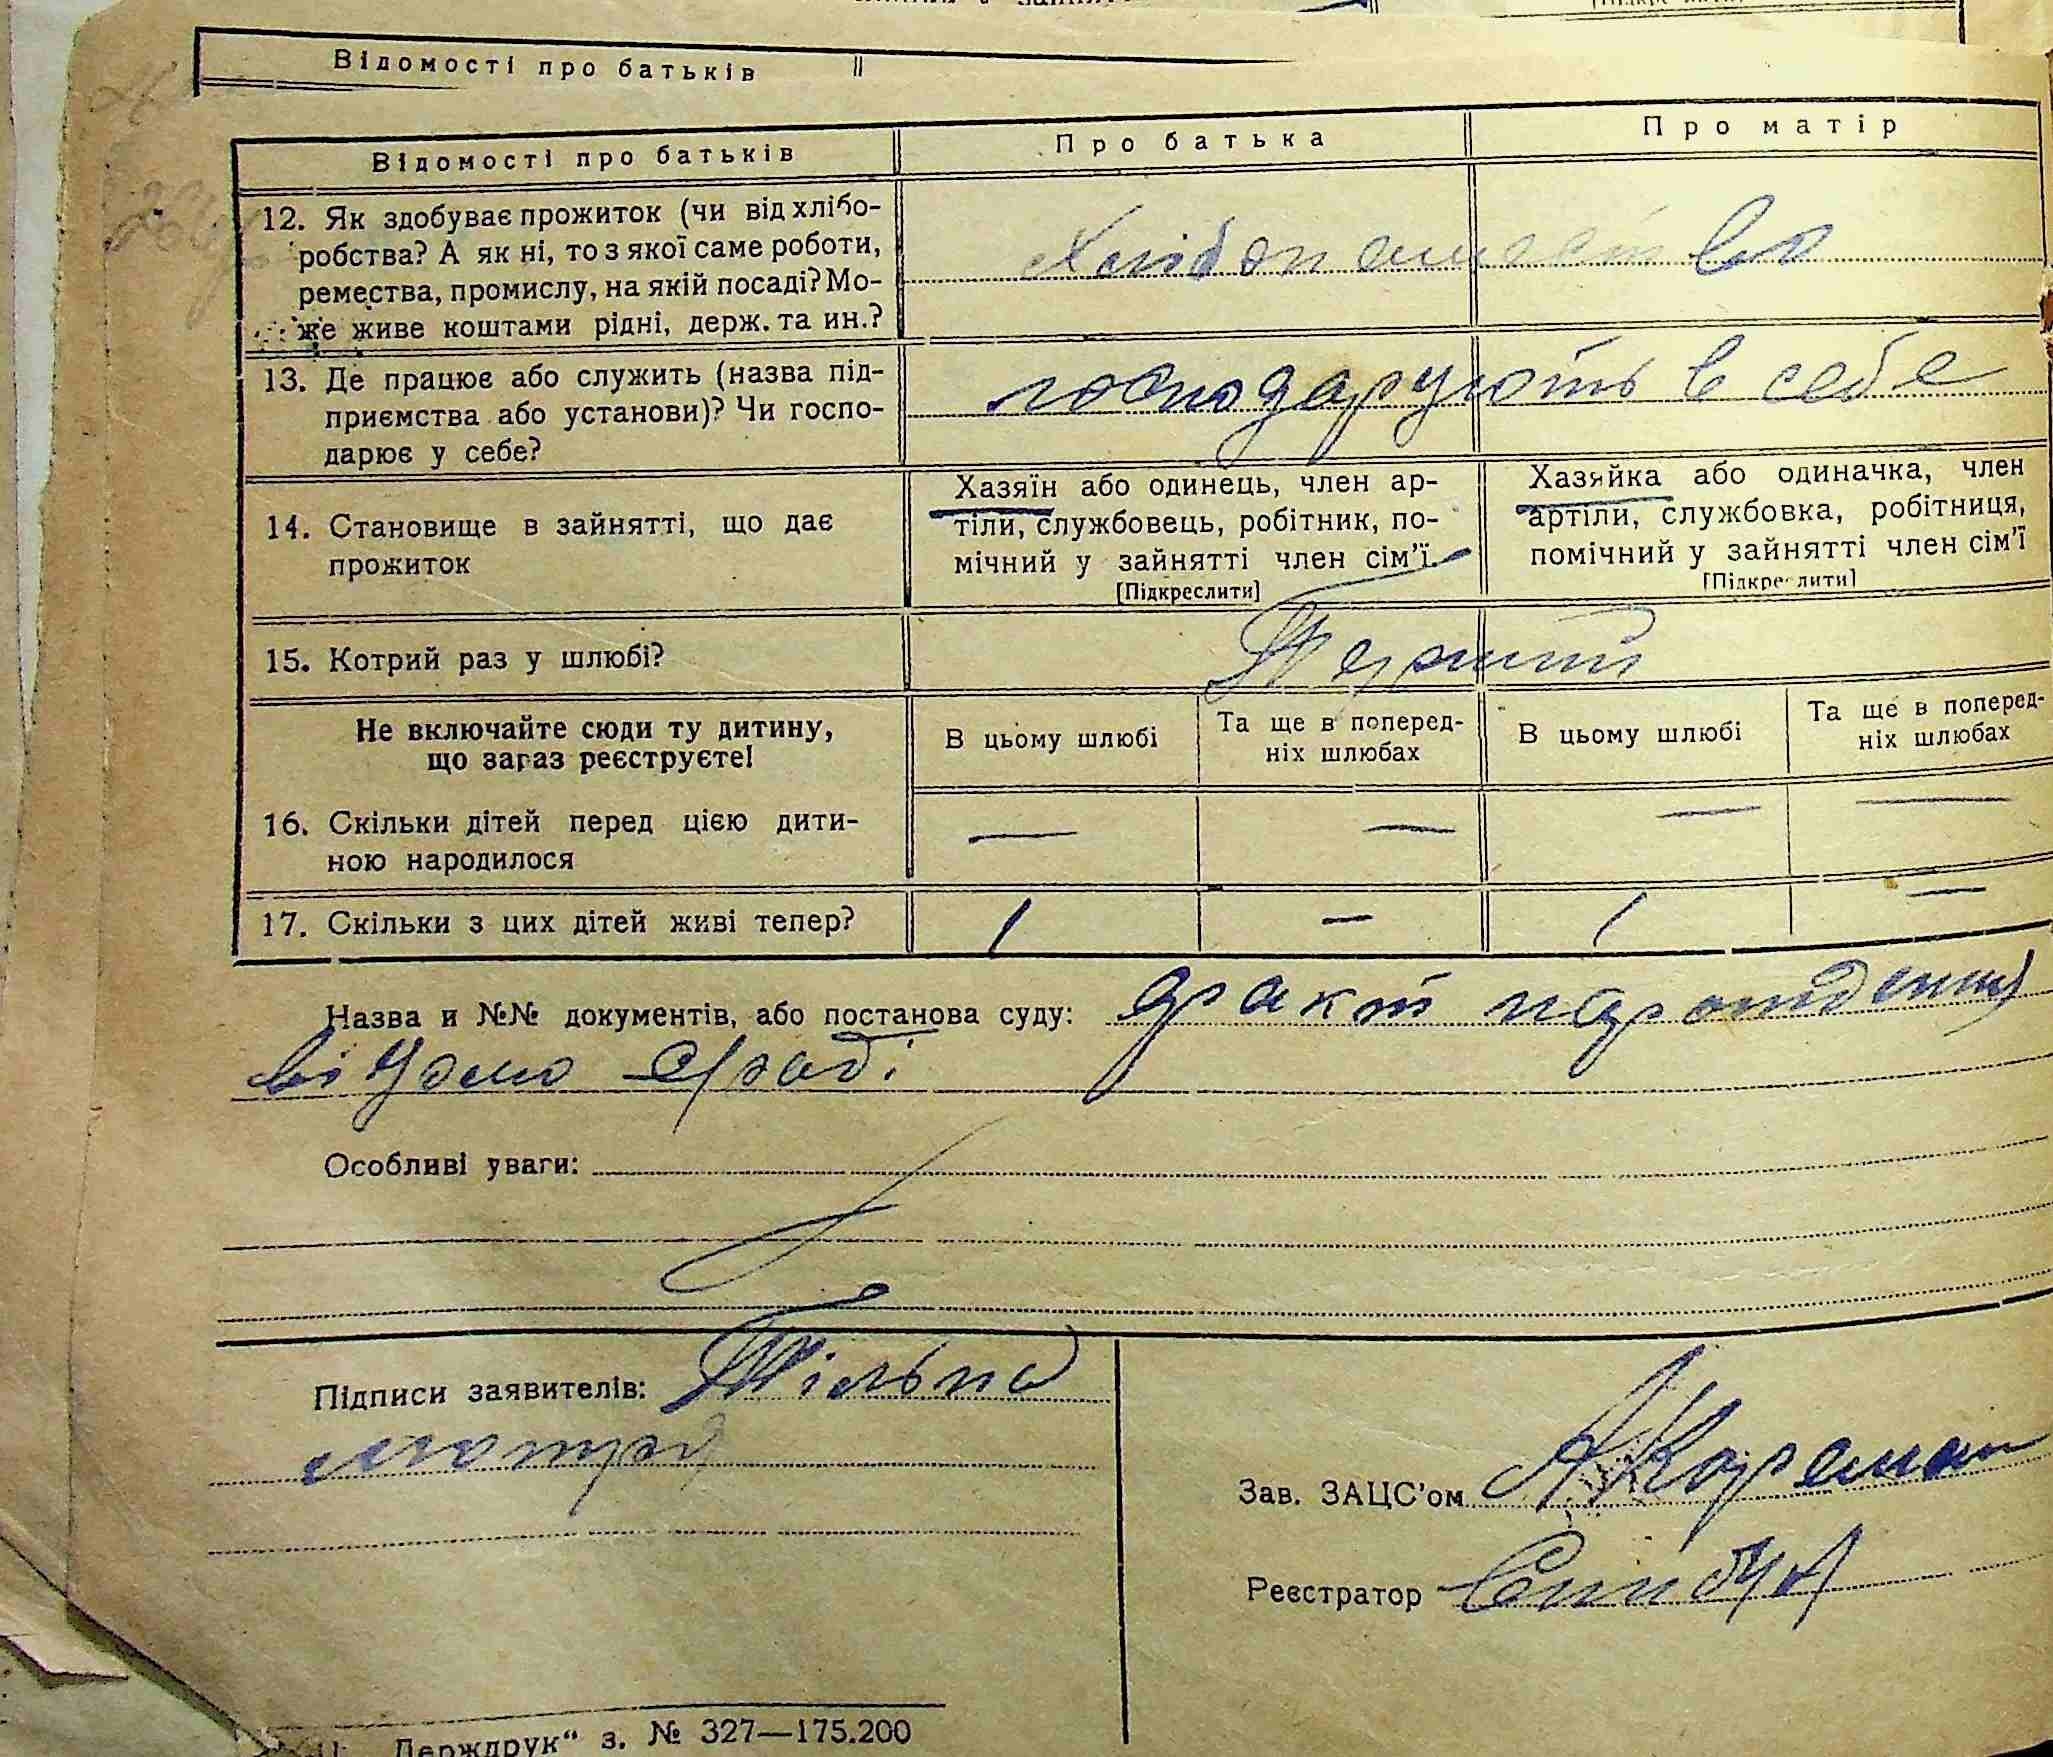 Відомості про батьків
Відомості про батьків Про батька Про матір
12. Як здобуває прожиток (чи від хлібо-
робства? А як ні, то з якої саме роботи,
ремества, промислу, на якій посаді? Мо-
же живе коштами рідні, держ. та ин.?
Хлібопашество
13. Де працює або служить (назва під-
приємства або установи)? Чи госпо-
дарює у себе?
господарують в себе
14. Становище в зайнятті, що дає
прожиток
Хазяїн або одинець, член ар-
тіли, службовець, робітник, по-
мічний у зайнятті член сім'ї.
[Підкреслити]
Хазяйка або одиначка, член
артіли, службовка, робітниця,
помічний у зайнятті член сім'ї
[Підкреслити]
15. Котрий раз у шлюбі?
Перший
Не включайте сюди ту дитину,
що зараз реєструєте!
В цьому шлюбі
Та ще в поперед-
ніх шлюбах
В цьому шлюбі
Та ще в поперед-
ніх шлюбах
16. Скільки дітей перед цією дити-
ною народилося
— — — —
17. Скільки з цих дітей живі тепер?
1 — 1 —
Назва и №№ документів, або постанова суду: факт нарождення
відомо с/раді
Особливі уваги:
Підписи заявителів: Тільна
мотря
Зав. ЗАЦС'ом
Реєстратор
Держдрук“ з. № 327—175.200